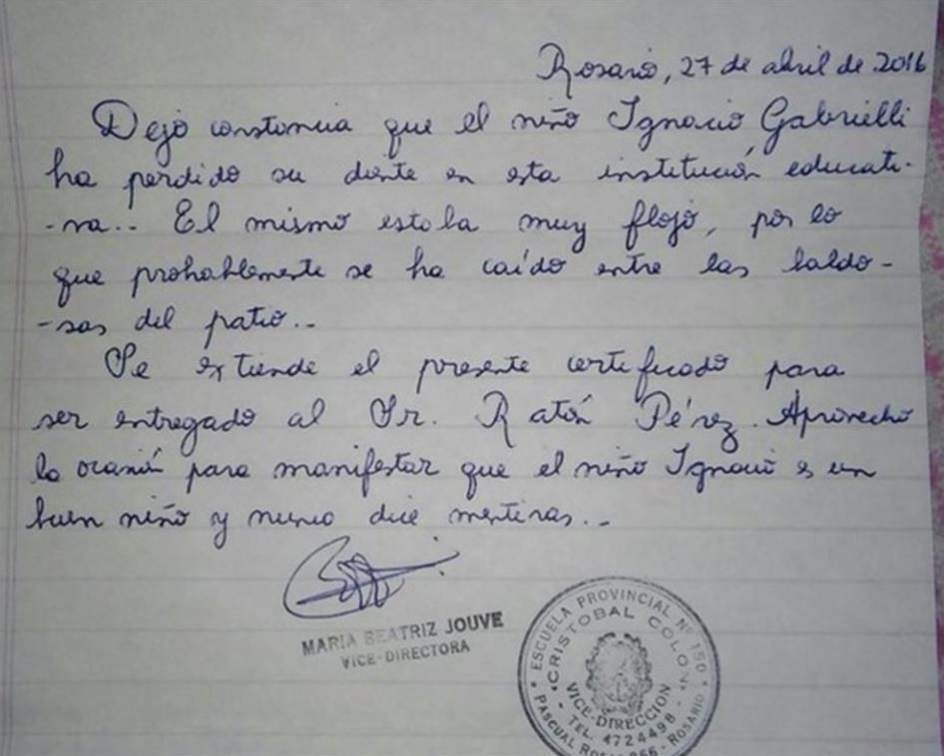 Rosario, 27 de abril de 2016
Dejo constancia que el niño Ignacio Gabrielli
ha perdido su diente en esta institución educati-
-va.. El mismo estaba muy flojo, por lo
que probablemente se ha caído entre las baldo-
-sas del patio..
Se extiende el presente certificado para
ser entregado al Sr. Ratón Pérez. Aprovecho
la ocasión para manifestar que el niño Ignacio es un
buen niño y nunca dice mentiras..
MARIA BEATRIZ JOUVE
VICE-DIRECTORA
ESCUELA PROVINCIAL Nº
CRISTOBAL COLON
VICE-DIRECCION
TEL. 4724498
PASCUAL ROSARIO